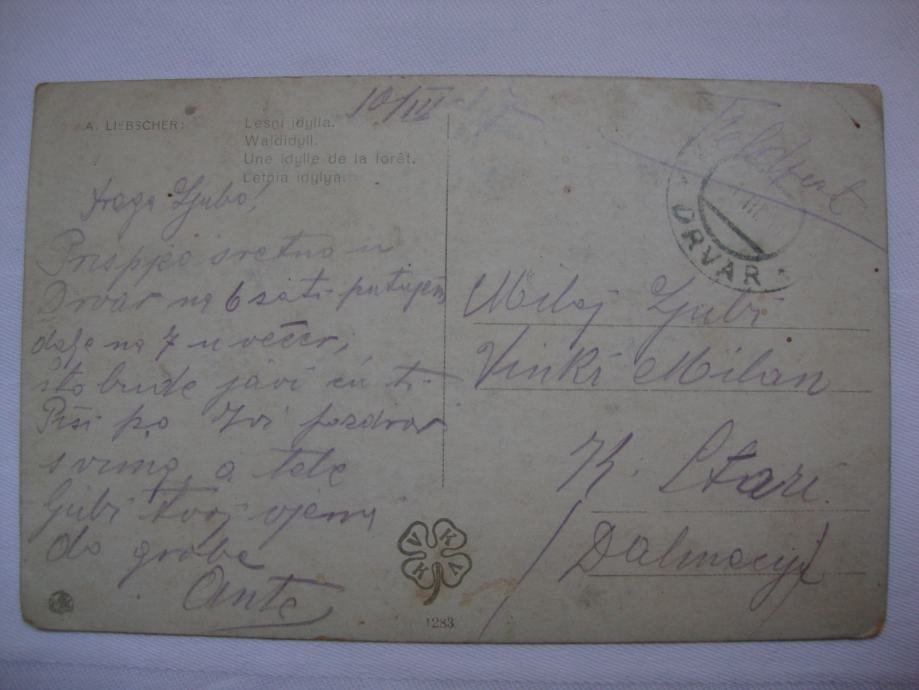 10/III - 17
A. LIEBSCHER:
Lesní idylla.
Waldidyll.
Une idylle de la forêt.
Letnia idylya.
Feldpost
DRVAR
Draga Ljubo,
Prispjeo sretno u
Drvar na 6 sati putujem
dalje na 7 u večer,
što bude javi ću ti.
Piši po pozdravi
svima, a tebe
ljubi tvoj vjerni
do groba
Ante
Miloj Ljubi
Vinki Milan
K. Stari
Dalmacija
VKKV
1283